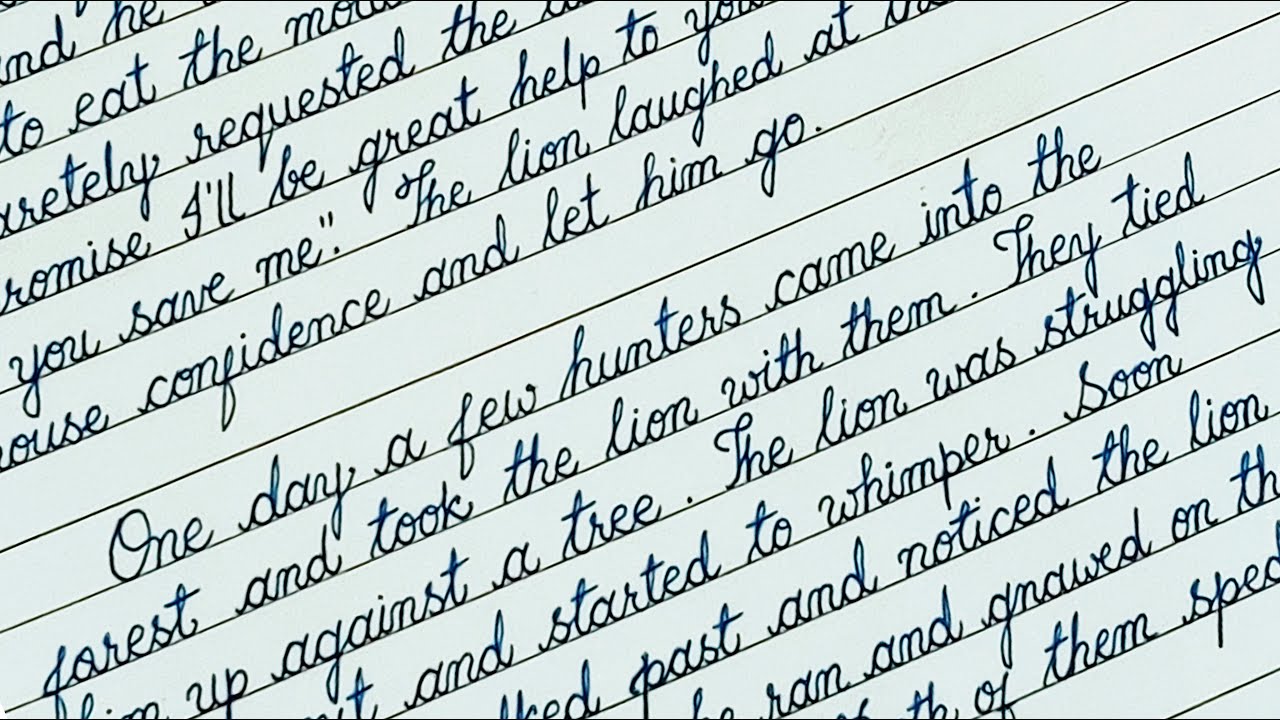 and he
to eat the
requested the
I'll be great help to you
you save me". The lion laughed at
confidence and let him go.
One day, a few hunters came into the
forest and took the lion with them. They tied
him up against a tree. The lion was struggling
and started to whimper. Soon
past and noticed the lion
ran and gnawed on
of them sped